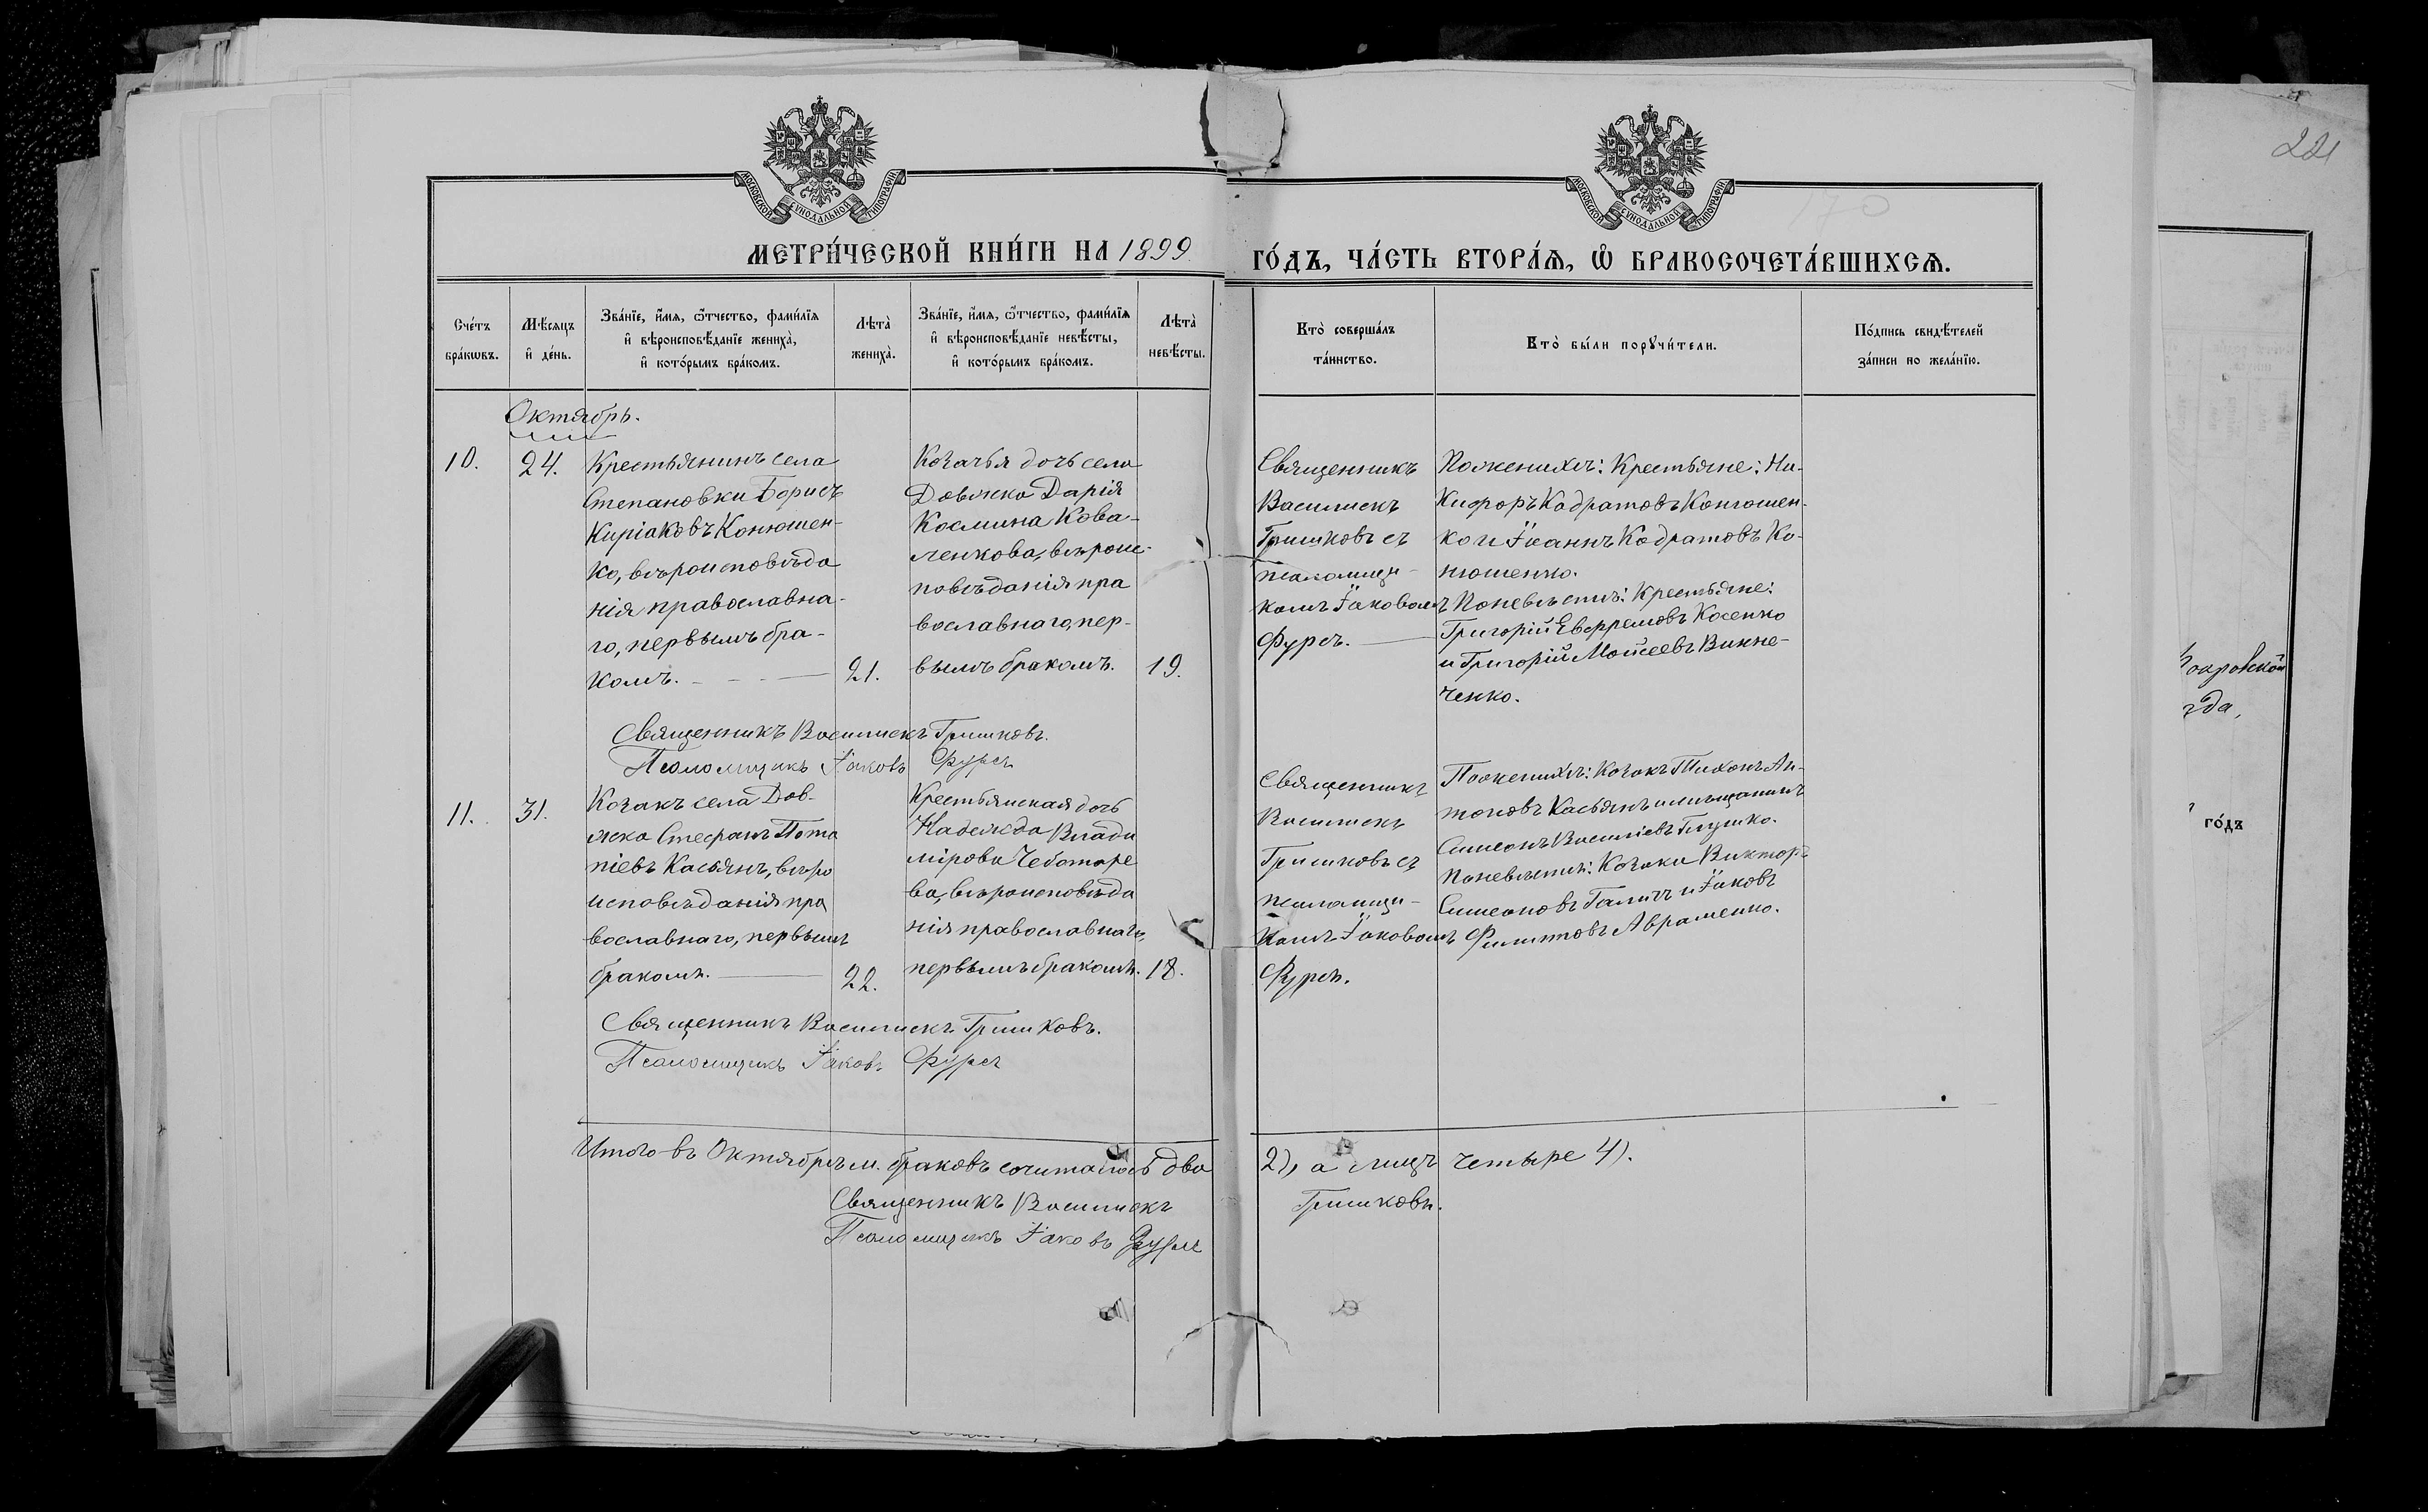 221
170
МОСКОВСКОЙ СУНОДАЛЬНОЙ ТИПОГРАФІИ
МОСКОВСКОЙ СУНОДАЛЬНОЙ ТИПОГРАФІИ
МЕТРИ́ЧЕСКОЙ КНИ́ГИ НА 1899
ГО́ДЪ, ЧА́СТЬ ВТОРА́Ѧ, Ѽ БРАКОСОЧЕТА́ВШИХСѦ.
Сче́тъ бра́кѡвъ.
Мѣ́сяцъ и҆ де́нь.
Зва́нїе, и҆́мя, ѻ҆́тчество, фами́лїя
и҆ вѣроисповѣ́данїе жениха̀,
и҆ кото́рымъ бра́комъ.
Лѣта̀ жениха̀.
Зва́нїе, и҆́мя, ѻ҆́тчество, фами́лїя
и҆ вѣроисповѣ́данїе невѣ́сты,
и҆ кото́рымъ бра́комъ.
Лѣта̀ невѣ́сты.
Кто̀ соверша́лъ
та́инство.
Кто̀ бы́ли порꙋчи́тели.
По́дпись свидѣ́телей
за́писи по жела́нїю.
Октябрь.
10.
24.
Крестьянинъ села
Степановки Борисъ
Киріаковъ Конюшен-
ко, вѣроисповѣда
нія православна-
го, первымъ бра-
комъ.
21.
Козачья дочь села
Довжко Дарія
Космина Кова-
ленкова, вѣроис-
повѣданія пра
вославнаго, пер-
вымъ бракомъ.
19.
Священникъ
Василискъ
Гришковъ съ
псаломщи-
комъ Іаковомъ
Фурсъ.
По женихѣ: Крестьяне: Ни-
кифоръ Кодратовъ Конюшен-
ко и Іоаннъ Кодратовъ Ко-
нюшенко.
По невѣстѣ: Крестьяне:
Григорій Евфремовъ Косенко
и Григорій Моисеевъ Викне-
ченко.
Священникъ Василискъ Гришковъ.
Псаломщикъ Іаковъ Фурсъ
11.
31.
Козакъ села Дов-
жко Стефанъ Пота
піевъ Касьянъ, вѣро
исповѣданія пра
вославнаго, первымъ
бракомъ.
22.
Крестьянская дочь
Надежда Влади
мірова Чеботаре
ва, вѣроисповѣда
нія православнаго,
первымъ бракомъ.
18.
Священникъ
Василискъ
Гришковъ съ
псаломщи-
комъ Іаковомъ
Фурсъ.
По женихѣ: Козакъ Тихонъ Ан-
тоновъ Касьянъ и мѣщанинъ
Симеонъ Василіевъ Глушко.
По невѣстѣ: Козаки Викторъ
Симеоновъ Галичъ и Іаковъ
Филипповъ Авраменко.
Священникъ Василискъ Гришковъ.
Псаломщикъ Іаковъ Фурсъ
Итого въ Октябрѣ м. браковъ сочиталось два 2), а лицъ четыре 4).
Священникъ Василискъ Гришковъ.
Псаломщикъ Іаковъ Фурсъ
окровской
да,
го́дъ